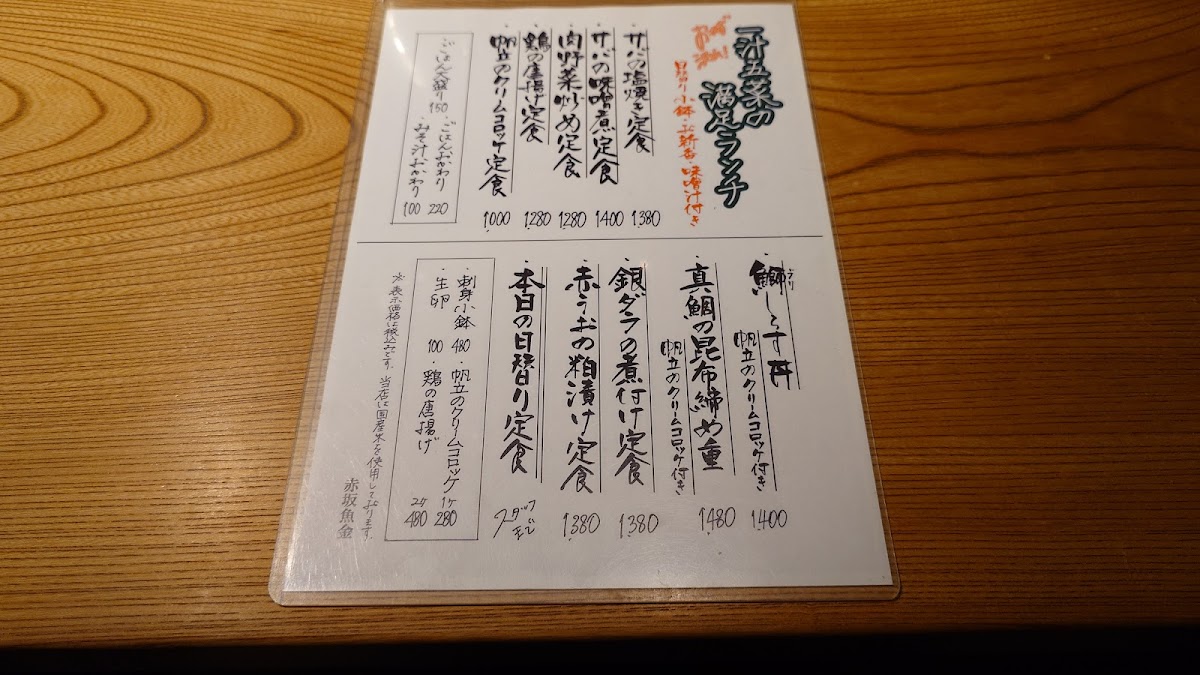 一汁五菜の
満足ランチ
日替り小鉢・お新香・味噌汁付き
・サバの塩焼き定食 1,380
・サバの味噌煮定食 1400
・肉野菜炒め定食 1,280
・鶏の唐揚げ定食 1,280
・帆立のクリームコロッケ定食 1,000
・ごはんおかわり 220
・みそ汁おかわり 100
・ごはん大盛り 150
・鰤しらす丼 1,400
ブリ
帆立のクリームコロッケ付き
・真鯛の昆布締め重 1,480
帆立のクリームコロッケ付き
・銀ダラの煮付け定食 1,380
・赤うおの粕漬け定食 1,380
・本日の日替り定食 スタッフまで
・刺身小鉢 480
・生卵 100
・帆立のクリームコロッケ 1ケ 280
・鶏の唐揚げ 2ケ 480
※表示価格は税込みです。当店は国産米を使用しております。
赤坂魚金